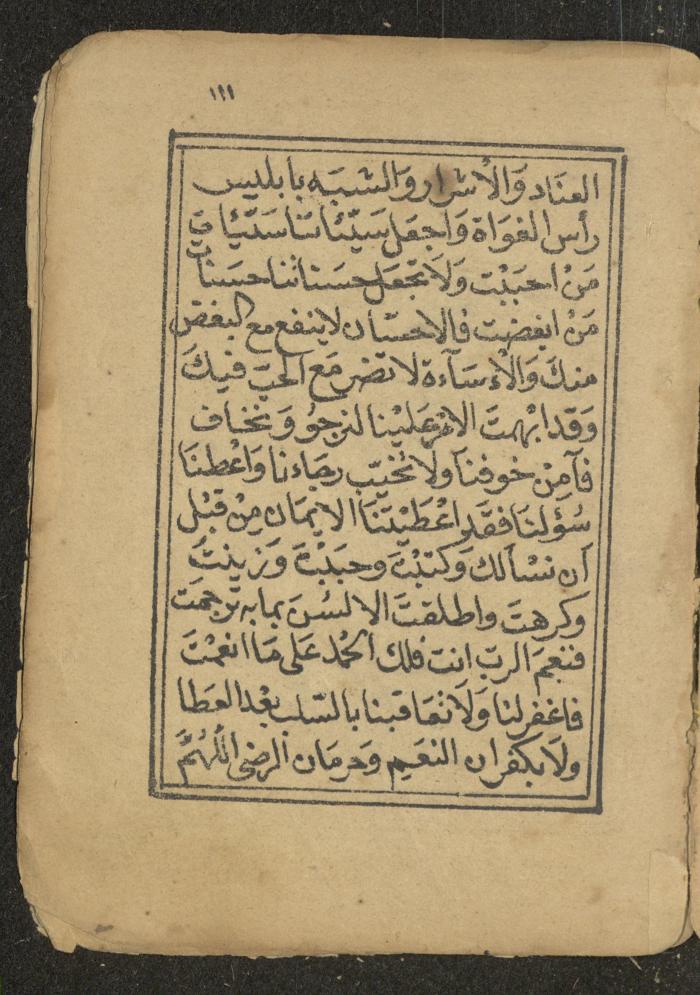 ١١١
العناد والأشرار والشبه بابليس
رأس الغواة واجعل سيّئاتنا سيّئات
من احببت ولا تجعل حسناتنا حسنات
من ابغضت فالاحسان لا ينفع مع البغض
منك والإساءة لا تضر مع الحبّ فيك
وقد ابهمت الامر علينا لنرجو ونخاف
فآمن خوفنا ولا تخيّب رجاءنا واعطنا
سؤلنا فقد اعطيتنا الايمان من قبل
ان نسألك وكتبت وحببت وزينت
وكرهت واطلقت الالسن بما به ترجمت
فنعم الرب انت فلك الحمد على ما انعمت
فاغفر لنا ولا تعاقبنا بالسّلب بعد العطا
ولا بكفران النعيم وحرمان الرضى اللّهمّ